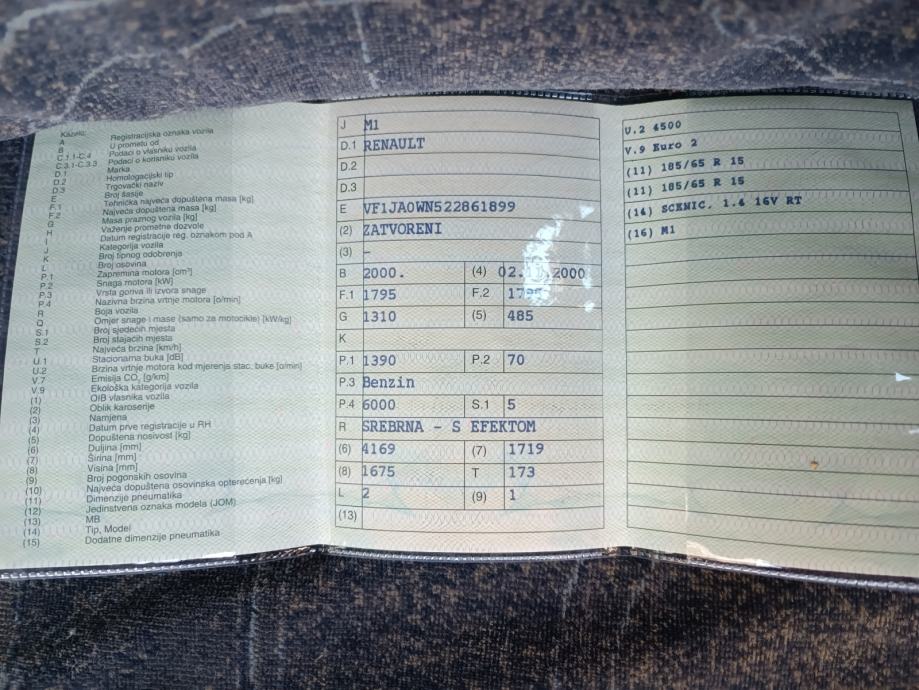 Kazalo:
A Registracijska oznaka vozila
B U prometu od
C.1.1-C.4 Podaci o vlasniku vozila
C.3.1-C.3.3 Podaci o korisniku vozila
D.1 Marka
D.2 Homologacijski tip
D.3 Trgovački naziv
E Broj šasije
F.1 Tehnička najveća dopuštena masa [kg]
F.2 Najveća dopuštena masa [kg]
G Masa praznog vozila [kg]
H Važenje prometne dozvole
I Datum registracije reg. oznakom pod A
J Kategorija vozila
K Broj tipnog odobrenja
L Broj osovina
P.1 Zapremina motora [cm³]
P.2 Snaga motora [kW]
P.3 Vrsta goriva ili izvora snage
P.4 Nazivna brzina vrtnje motora [o/min]
R Boja vozila
Q Omjer snage i mase (samo za motocikle) [kW/kg]
S.1 Broj sjedećih mjesta
S.2 Broj stajaćih mjesta
T Najveća brzina [km/h]
U.1 Stacionarna buka [dB]
U.2 Brzina vrtnje motora kod mjerenja stac. buke [o/min]
V.7 Emisija CO₂ [g/km]
V.9 Ekološka kategorija vozila
(1) OIB vlasnika vozila
(2) Oblik karoserije
(3) Namjena
(4) Datum prve registracije u RH
(5) Dopuštena nosivost [kg]
(6) Duljina [mm]
(7) Širina [mm]
(8) Visina [mm]
(9) Broj pogonskih osovina
(10) Najveća dopuštena osovinska opterećenja [kg]
(11) Dimenzije pneumatika
(12) Jedinstvena oznaka modela (JOM)
(13) MB
(14) Tip, Model
(15) Dodatne dimenzije pneumatika
J M1
D.1 RENAULT
D.2
D.3
E VF1JA0WN522861899
(2) ZATVORENI
(3) –
B 2000. (4) 02. 2000
F.1 1795 F.2
G 1310 (5) 485
K
P.1 1390 P.2 70
P.3 Benzin
P.4 6000 S.1 5
R SREBRNA - S EFEKTOM
(6) 4169 (7) 1719
(8) 1675 T 173
L 2 (9) 1
(13)
U.2 4500
V.9 Euro 2
(11) 185/65 R 15
(11) 185/65 R 15
(14) SCENIC, 1.4 16V RT
(16) M1